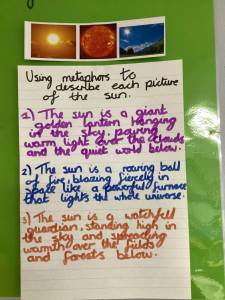 Using metaphors to
describe each picture
of the sun.
1) The sun is a giant
golden lantern hanging
in the sky, pouring
warm light over the clouds
and the quiet world below.
2) The sun is a roaring ball
of fire, blazing fiercely in
space like a powerful furnace
that lights the whole universe.
3) The sun is a watchful
guardian, standing high in
the sky and spreading
warmth over the fields
and forests below.